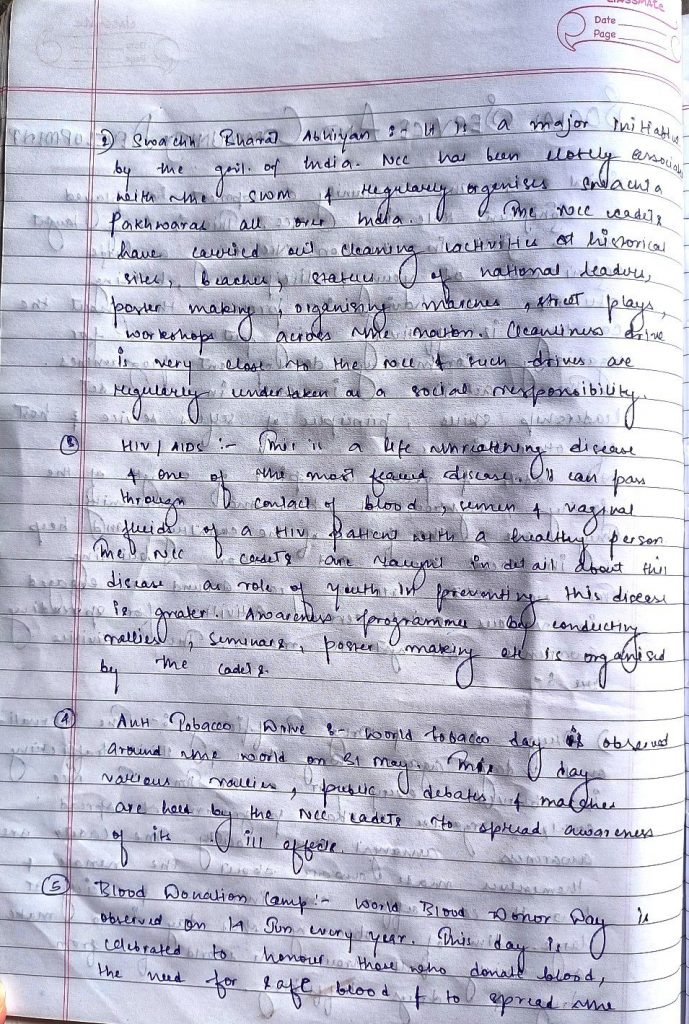 classmate
Date
Page
2) Swachh Bharat Abhiyan :- It is a major initiative
by the govt. of India. NCC has been closely associa
with the SWM & regularly organises swachta
Pakhwaras all over India. The NCC cadets
have carried out cleaning activities at historical
sites, beaches, statues of national leaders,
poster making, organising marches, street plays,
workshops across the nation. Cleanliness drive
is very close to the NCC & such drives are
regularly undertaken as a social responsibility.
3 HIV/AIDS :- This is a life threatening disease
& one of the most feared disease. It can pass
through contact of blood, semen & vaginal
fluids of a HIV patient with a healthy person
The NCC cadets are taught in detail about this
disease as role of youth in preventing this disease
is greater. Awareness programmes by conducting
rallies, seminars, poster making etc is organised
by the cadets.
4 Anti Tobacco Drive :- World tobacco day is observed
around the world on 31 May. This day
various rallies, public debates & marches
are held by the NCC cadets to spread awareness
of its ill effects
5 Blood Donation Camp :- World Blood Donor Day is
observed on 14 Jun every year. This day is
celebrated to honour those who donate blood,
the need for safe blood & to spread the